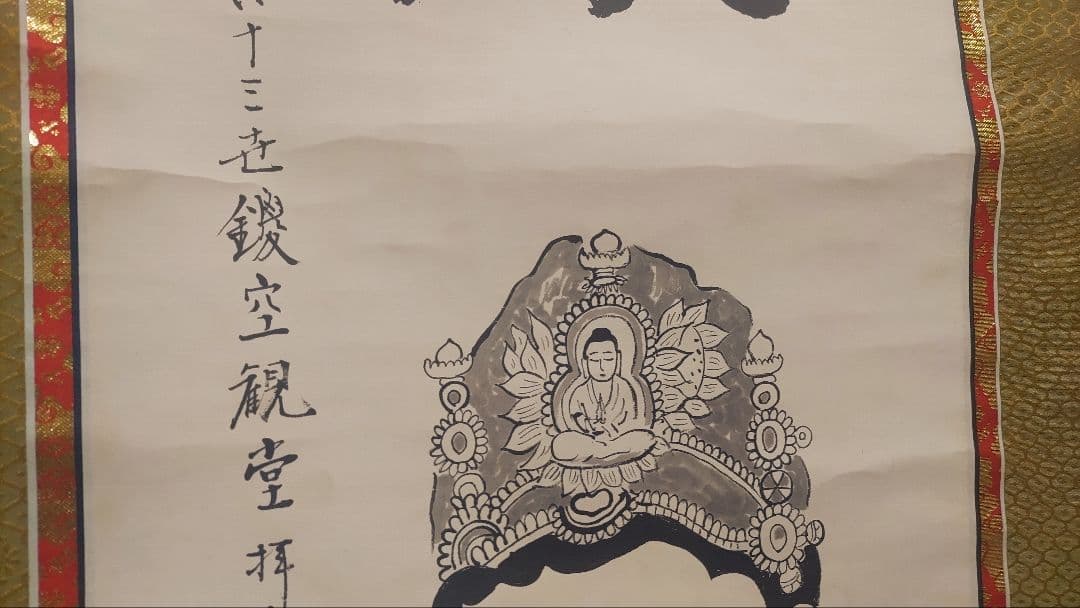 十三世鑁空観堂拝